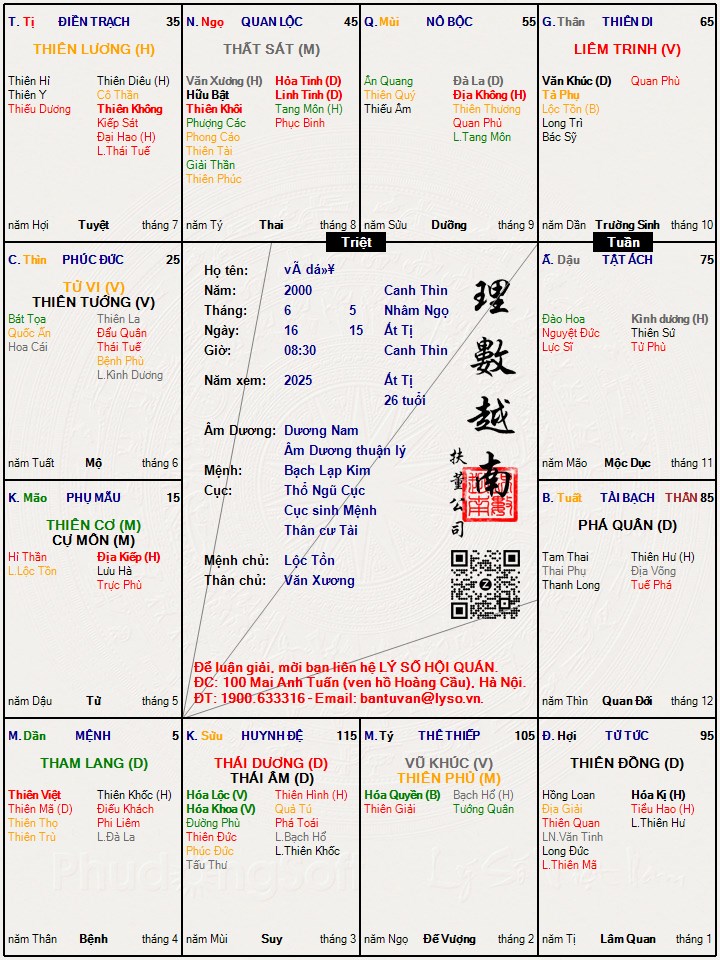 T. Tị ĐIỀN TRẠCH 35
THIÊN LƯƠNG (H)
Thiên Hỉ Thiên Diêu (H)
Thiên Y Cô Thần
Thiếu Dương Thiên Không
Kiếp Sát
Đại Hao (H)
L.Thái Tuế
năm Hợi Tuyệt tháng 7
N. Ngọ QUAN LỘC 45
THẤT SÁT (M)
Văn Xương (H) Hỏa Tinh (D)
Hữu Bật Linh Tinh (D)
Thiên Khôi Tang Môn (H)
Phượng Các Phục Binh
Phong Cáo
Thiên Tài
Giải Thần
Thiên Phúc
năm Tý Thai tháng 8
Q. Mùi NÔ BỘC 55
Ân Quang Đà La (D)
Thiên Quý Địa Không (H)
Thiếu Âm Thiên Thương
Quan Phủ
L.Tang Môn
năm Sửu Dưỡng tháng 9
G. Thân THIÊN DI 65
LIÊM TRINH (V)
Văn Khúc (D) Quan Phù
Tả Phụ
Lộc Tồn (B)
Long Trì
Bác Sỹ
năm Dần Trường Sinh tháng 10
C. Thìn PHÚC ĐỨC 25
TỬ VI (V)
THIÊN TƯỚNG (V)
Bát Tọa Thiên La
Quốc Ấn Đẩu Quân
Hoa Cái Thái Tuế
Bệnh Phù
L.Kình Dương
năm Tuất Mộ tháng 6
Triệt
Tuần
Họ tên: vÃ­ dá»¥
Năm: 2000 Canh Thìn
Tháng: 6 5 Nhâm Ngọ
Ngày: 16 15 Ất Tị
Giờ: 08:30 Canh Thìn
Năm xem: 2025 Ất Tị
26 tuổi
Âm Dương: Dương Nam
Âm Dương thuận lý
Mệnh: Bạch Lạp Kim
Cục: Thổ Ngũ Cục
Cục sinh Mệnh
Thân cư Tài
Mệnh chủ: Lộc Tồn
Thân chủ: Văn Xương
理數越南
扶董公司
Để luận giải, mời bạn liên hệ LÝ SỐ HỘI QUÁN.
ĐC: 100 Mai Anh Tuấn (ven hồ Hoàng Cầu), Hà Nội.
ĐT: 1900.633316 - Email: bantuvan@lyso.vn.
Ấ. Dậu TẬT ÁCH 75
Đào Hoa Kình dương (H)
Nguyệt Đức Thiên Sứ
Lực Sĩ Tử Phù
năm Mão Mộc Dục tháng 11
K. Mão PHỤ MẪU 15
THIÊN CƠ (M)
CỰ MÔN (M)
Hỉ Thần Địa Kiếp (H)
L.Lộc Tồn Lưu Hà
Trực Phù
năm Dậu Tử tháng 5
B. Tuất TÀI BẠCH THÂN 85
PHÁ QUÂN (D)
Tam Thai Thiên Hư (H)
Thai Phụ Địa Võng
Thanh Long Tuế Phá
năm Thìn Quan Đới tháng 12
M. Dần MỆNH 5
THAM LANG (D)
Thiên Việt Thiên Khốc (H)
Thiên Mã (D) Điếu Khách
Thiên Thọ Phi Liêm
Thiên Trù L.Đà La
năm Thân Bệnh tháng 4
K. Sửu HUYNH ĐỆ 115
THÁI DƯƠNG (D)
THÁI ÂM (D)
Hóa Lộc (V) Thiên Hình (H)
Hóa Khoa (V) Quả Tú
Đường Phù Phá Toái
Thiên Đức L.Bạch Hổ
Phúc Đức L.Thiên Khốc
Tấu Thư
năm Mùi Suy tháng 3
M. Tý THÊ THIẾP 105
VŨ KHÚC (V)
THIÊN PHỦ (M)
Hóa Quyền (B) Bạch Hổ (H)
Thiên Giải Tướng Quân
năm Ngọ Đế Vượng tháng 2
Đ. Hợi TỬ TỨC 95
THIÊN ĐỒNG (D)
Hồng Loan Hóa Kị (H)
Địa Giải Tiểu Hao (H)
Thiên Quan L.Thiên Hư
LN.Văn Tinh
Long Đức
L.Thiên Mã
năm Tị Lâm Quan tháng 1